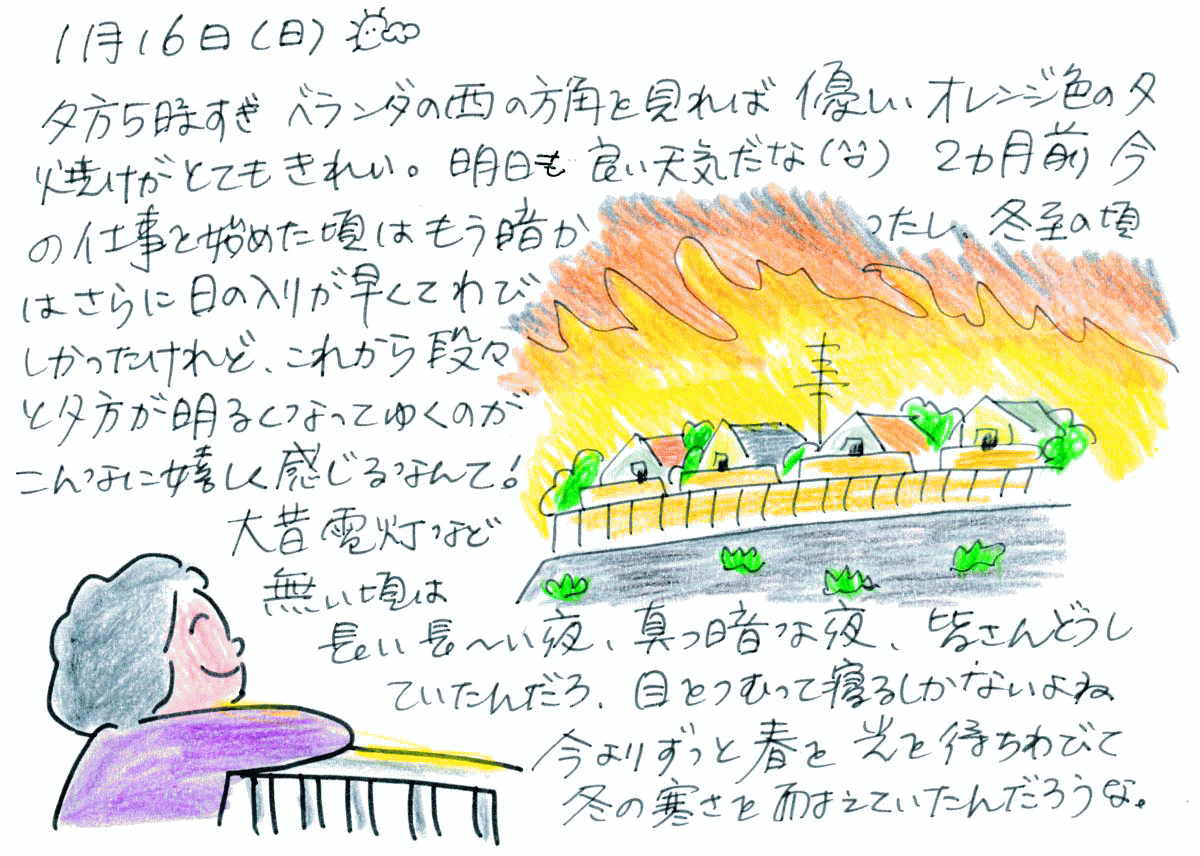 1月16日(日)
夕方5時すぎ ベランダの西の方角を見れば 優しいオレンジ色の夕
焼けがとてもきれい。明日も良い天気だな(^^) 2カ月前 今
の仕事を始めた頃はもう暗かったし、冬至の頃
はさらに日の入りが早くてわび
しかったけれど、これから段々
と夕方が明るくなってゆくのが
こんなに嬉しく感じるなんて!
大昔電灯など
無い頃は
長い長〜い夜、真っ暗な夜、皆さんどうし
ていたんだろ、目をつむって寝るしかないよね
今よりずっと春を 光を待ちわびて
冬の寒さを耐えていたんだろうな。